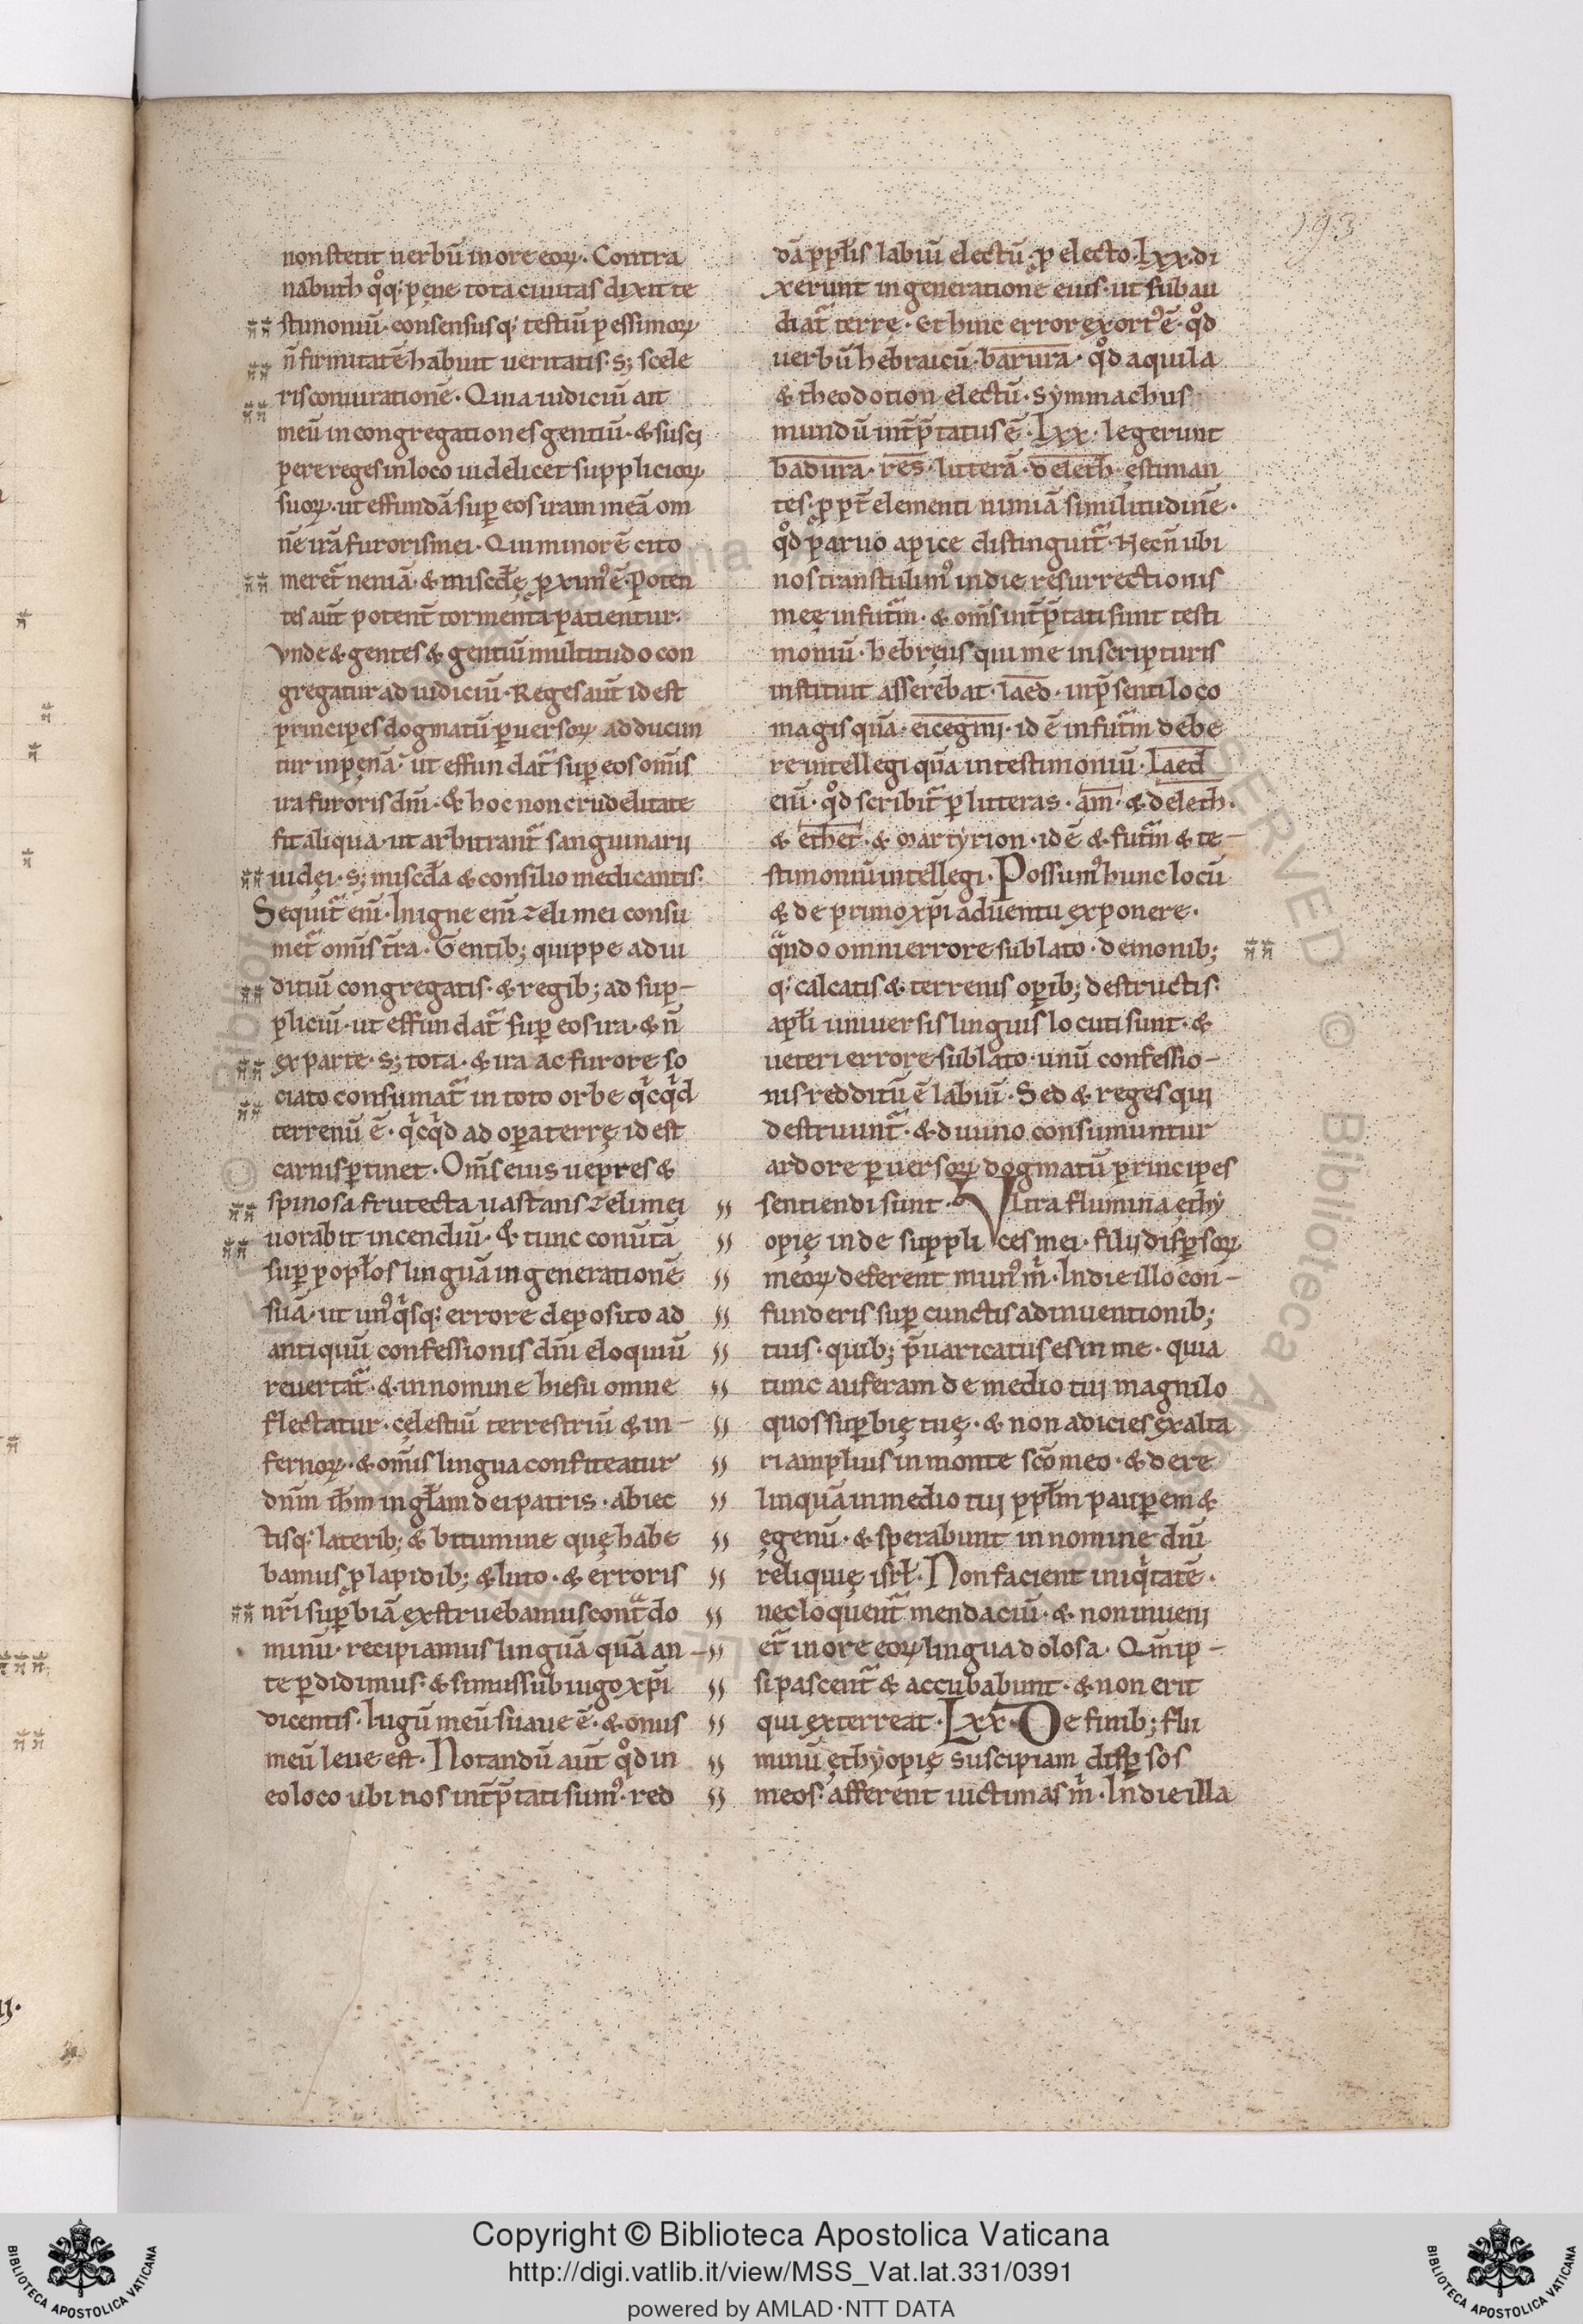 193
non stetit uerbū in ore eoꝝ. Contra
nabuth qͦq; pene tota ciuitas dixit te
stimoniū. consensusq; testiū pessimoꝝ
n̄ firmitatē habuit ueritatis. s; scele
ris coniurationē. Quia iudiciū ait
meū in congregationes gentiū. & susci
pere reges in loco uidelicet supplicioꝝ
suoꝝ. ut effundā suꝑ eos iram meā om
nē irā furoris mei. Qui minor ē cito
meret᷑ ueniā. & misc̄dię ꝓximꝰ ē. Poten
tes aut̄ potent̄ tormenta patientur.
Vnde & gentes & gentiū multitudo con
gregatur ad iudiciū. Reges aut̄ id est
principes dogmatū ꝑuersoꝝ adducun
tur in pęnā. ut effundat᷑ suꝑ eos om̄is
ira furoris dn̄i. & hoc non crudelitate
fit aliqua. ut arbitrant᷑ sanguinarij
iudęi. s; misc̄dia & consilio medicantis.
Sequit᷑ eni̅. In igne eni̅ zeli mei consu
met᷑ om̄is t̄ra. Gentib; quippe ad iu
ditiū congregatis. & regib; ad sup-
pliciū. ut effundat᷑ suꝑ eos ira. & n̄
ex parte. s; tota. & ira ac furore so
ciato consumat᷑ in toto orbe qͥcqͥd
terrenū ē. qͥcqͥd ad oꝑa terrę id est
carnis ꝑtinet. Om̄s eius uepres &
spinosa frutecta uastans zeli mei
uorabit incendiū. & tunc conuͬtā
suꝑ popłos linguā in generationē
suā. ut unꝰ qͥsq; errore deposito ad
antiquū confessionis dn̄i eloquiū
reuertat᷑. & in nomine hiesu omne
flectatur. cęlestiū terrestriū & in-
fernoꝝ. & om̄is lingua confiteatur
dn̄m ih̄m in głam dei patris. abiec
tisq; laterib; & bitumine quę habe
bamus ꝓ lapidib; & luto. & erroris
nr̄i suꝑbiā exstruebamus contͣ do
minū. recipiamus linguā quā an-
te ꝑdidimus. & simus sub iugo xp̄i
dicentis. Iugū meū suaue ē. & onus
meū leue est. Notandū aut̄ qͦd in
eo loco ubi nos int̄p̄tati sumꝰ. red
dā ꝑpłis labiū electū. ꝓ electo. lxx. di
xerunt in generatione eius. ut subau
diat᷑ terrę. Et hinc error exortꝰ ē. qͦd
uerbū hebraicū. barura. qͦd aquila
& theodotion electū. symmachus
mundū int̄p̄tatus ē. Lxx. legerunt
badura. res. litterā. deleth. ęstiman
tes. ꝓpt̄ elementi nimiā similitudinē.
qͦd paruo apice distinguit᷑. Necn̄ ubi
nos transtulimꝰ in die resurrectionis
meę in futͧm. & om̄s int̄p̄tati sunt testi
moniū. hebręus qui me in scripturis
instituit asserebat. laed. in p̄senti loco
magis quā. eicegmi. id ē in futͧm debe
re intellegi quā in testimoniū. Laed
eni̅. qͦd scribit᷑ ꝑ litteras. am. & deleth.
& ethet. & martyrion. id ē & futͧm & te-
stimoniū intellegi. Possumꝰ hunc locū
& de primo xp̄i aduentu exponere.
qͣndo omni errore sublato. demonib;
q; calcatis & terrenis oꝑib; destructis.
apłi uniuersis linguis locuti sunt. &
ueteri errore sublato. unū confessio-
nis redditū ē labiū. Sed & reges qui
destruunt᷑. & diuino consumuntur
ardore ꝑuersoꝝ dogmatū principes
sentiendi sunt. Vltra flumina ęthy
opię inde supplices mei. filij disꝑsoꝝ
meoꝝ deferent munꝰ m̄. In die illo con-
funderis suꝑ cunctis adinuentionib;
tuis. quib; p̄uaricatus es in me. quia
tunc auferam de medio tui magnilo
quos suꝑbię tuę. & non adicies exalta
ri amplius in monte sc̄o meo. & dere
linquā in medio tui ꝑpłm pauꝑem &
ęgenū. & sperabunt in nomine dn̄i
reliquię isrł. Non facient iniqͥtatē.
nec loquent᷑ mendaciū. & non inueni
et᷑ in ore eoꝝ lingua dolosa. Qm̄ ip-
si pascent᷑ & accubabunt. & non erit
qui exterreat. Lxx. De finib; flu
minū ęthyopię suscipiam disꝑsos
meos. afferent uictimas m̄. In die illa
Copyright © Biblioteca Apostolica Vaticana
http://digi.vatlib.it/view/MSS_Vat.lat.331/0391
powered by AMLAD·NTT DATA
BIBLIOTECA APOSTOLICA VATICANA
BIBLIOTECA APOSTOLICA VATICANA